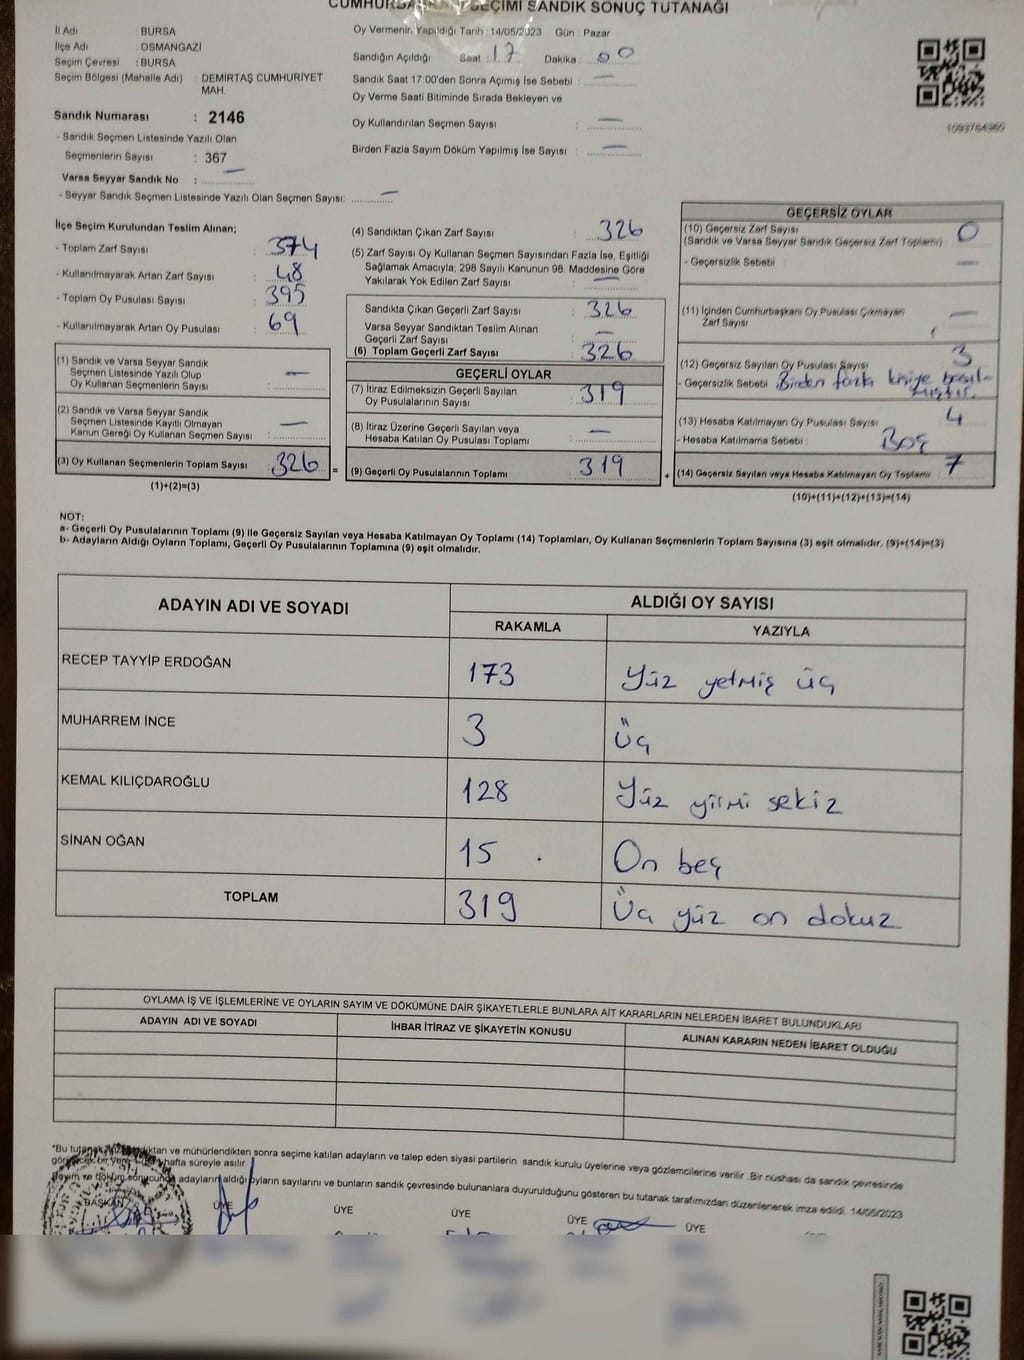 SEÇİMİ SANDIK SONUÇ TUTANAĞI
İl Adı : BURSA
İlçe Adı : OSMANGAZİ
Seçim Çevresi : BURSA
Seçim Bölgesi (Mahalle Adı) : DEMİRTAŞ CUMHURİYET
MAH.
Sandık Numarası : 2146
- Sandık Seçmen Listesinde Yazılı Olan
Seçmenlerin Sayısı : 367
Varsa Seyyar Sandık No : —
- Seyyar Sandık Seçmen Listesinde Yazılı Olan Seçmen Sayısı: —
Oy Vermenin Yapıldığı Tarih : 14/05/2023 Gün : Pazar
Sandığın Açıldığı Saat : 17 Dakika : 00
Sandık Saat 17:00'den Sonra Açımış İse Sebebi : —
Oy Verme Saati Bitiminde Sırada Bekleyen ve
Oy Kullandırılan Seçmen Sayısı : —
Birden Fazla Sayım Döküm Yapılmış İse Sayısı : —
1593764360
İlçe Seçim Kurulundan Teslim Alınan;
- Toplam Zarf Sayısı : 374
- Kullanılmayarak Artan Zarf Sayısı : 48
- Toplam Oy Pusulası Sayısı : 395
- Kullanılmayarak Artan Oy Pusulası : 69
(1) Sandık ve Varsa Seyyar Sandık
Seçmen Listesinde Yazılı Olup
Oy Kullanan Seçmenlerin Sayısı : —
(2) Sandık ve Varsa Seyyar Sandık
Seçmen Listesinde Kayıtlı Olmayan
Kanun Gereği Oy Kullanan Seçmen Sayısı : —
(3) Oy Kullanan Seçmenlerin Toplam Sayısı : 326
(1)+(2)=(3)
(4) Sandıktan Çıkan Zarf Sayısı : 326
(5) Zarf Sayısı Oy Kullanan Seçmen Sayısından Fazla İse, Eşitliği
Sağlamak Amacıyla; 298 Sayılı Kanunun 98. Maddesine Göre
Yakılarak Yok Edilen Zarf Sayısı : —
Sandıkta Çıkan Geçerli Zarf Sayısı : 326
Varsa Seyyar Sandıktan Teslim Alınan
Geçerli Zarf Sayısı : —
(6) Toplam Geçerli Zarf Sayısı : 326
GEÇERLİ OYLAR
(7) İtiraz Edilmeksizin Geçerli Sayılan
Oy Pusulalarının Sayısı : 319
(8) İtiraz Üzerine Geçerli Sayılan veya
Hesaba Katılan Oy Pusulası Toplamı : —
= (9) Geçerli Oy Pusulalarının Toplamı : 319
GEÇERSİZ OYLAR
(10) Geçersiz Zarf Sayısı : 0
(Sandık ve Varsa Seyyar Sandık Geçersiz Zarf Toplamı)
- Geçersizlik Sebebi : —
(11) İçinden Cumhurbaşkanı Oy Pusulası Çıkmayan
Zarf Sayısı : —
(12) Geçersiz Sayılan Oy Pusulası Sayısı : 3
- Geçersizlik Sebebi : Birden fazla kişiye basıl-
mıştır.
(13) Hesaba Katılmayan Oy Pusulası Sayısı : 4
- Hesaba Katılmama Sebebi : Boş
+ (14) Geçersiz Sayılan veya Hesaba Katılmayan Oy Toplamı : 7
(10)+(11)+(12)+(13)=(14)
NOT:
a- Geçerli Oy Pusulalarının Toplamı (9) ile Geçersiz Sayılan veya Hesaba Katılmayan Oy Toplamı (14) Toplamları, Oy Kullanan Seçmenlerin Toplam Sayısına (3) eşit olmalıdır. (9)+(14)=(3)
b- Adayların Aldığı Oyların Toplamı, Geçerli Oy Pusulalarının Toplamına (9) eşit olmalıdır.
ADAYIN ADI VE SOYADI
ALDIĞI OY SAYISI
RAKAMLA YAZIYLA
RECEP TAYYİP ERDOĞAN 173 Yüz yetmiş üç
MUHARREM İNCE 3 Üç
KEMAL KILIÇDAROĞLU 128 Yüz yirmi sekiz
SİNAN OĞAN 15 . On beş
TOPLAM 319 Üç yüz on dokuz
OYLAMA İŞ VE İŞLEMLERİNE VE OYLARIN SAYIM VE DÖKÜMÜNE DAİR ŞİKAYETLERLE BUNLARA AİT KARARLARIN NELERDEN İBARET BULUNDUKLARI
ADAYIN ADI VE SOYADI İHBAR İTİRAZ VE ŞİKAYETİN KONUSU ALINAN KARARIN NEDEN İBARET OLDUĞU
*Bu ve mühürlendikten sonra seçime katılan adayların ve talep eden siyasi partilerin sandık kurulu üyelerine veya gözlemcilerine verilir. Bir nüshası da sandık çevresinde
hafta süreyle asılır.
adayların aldığı oyların sayılarını ve bunların sandık çevresinde bulunanlara duyurulduğunu gösteren bu tutanak tarafımızdan düzenlenerek imza edildi. 14/05/2023
BAŞKAN ÜYE ÜYE ÜYE ÜYE ÜYE